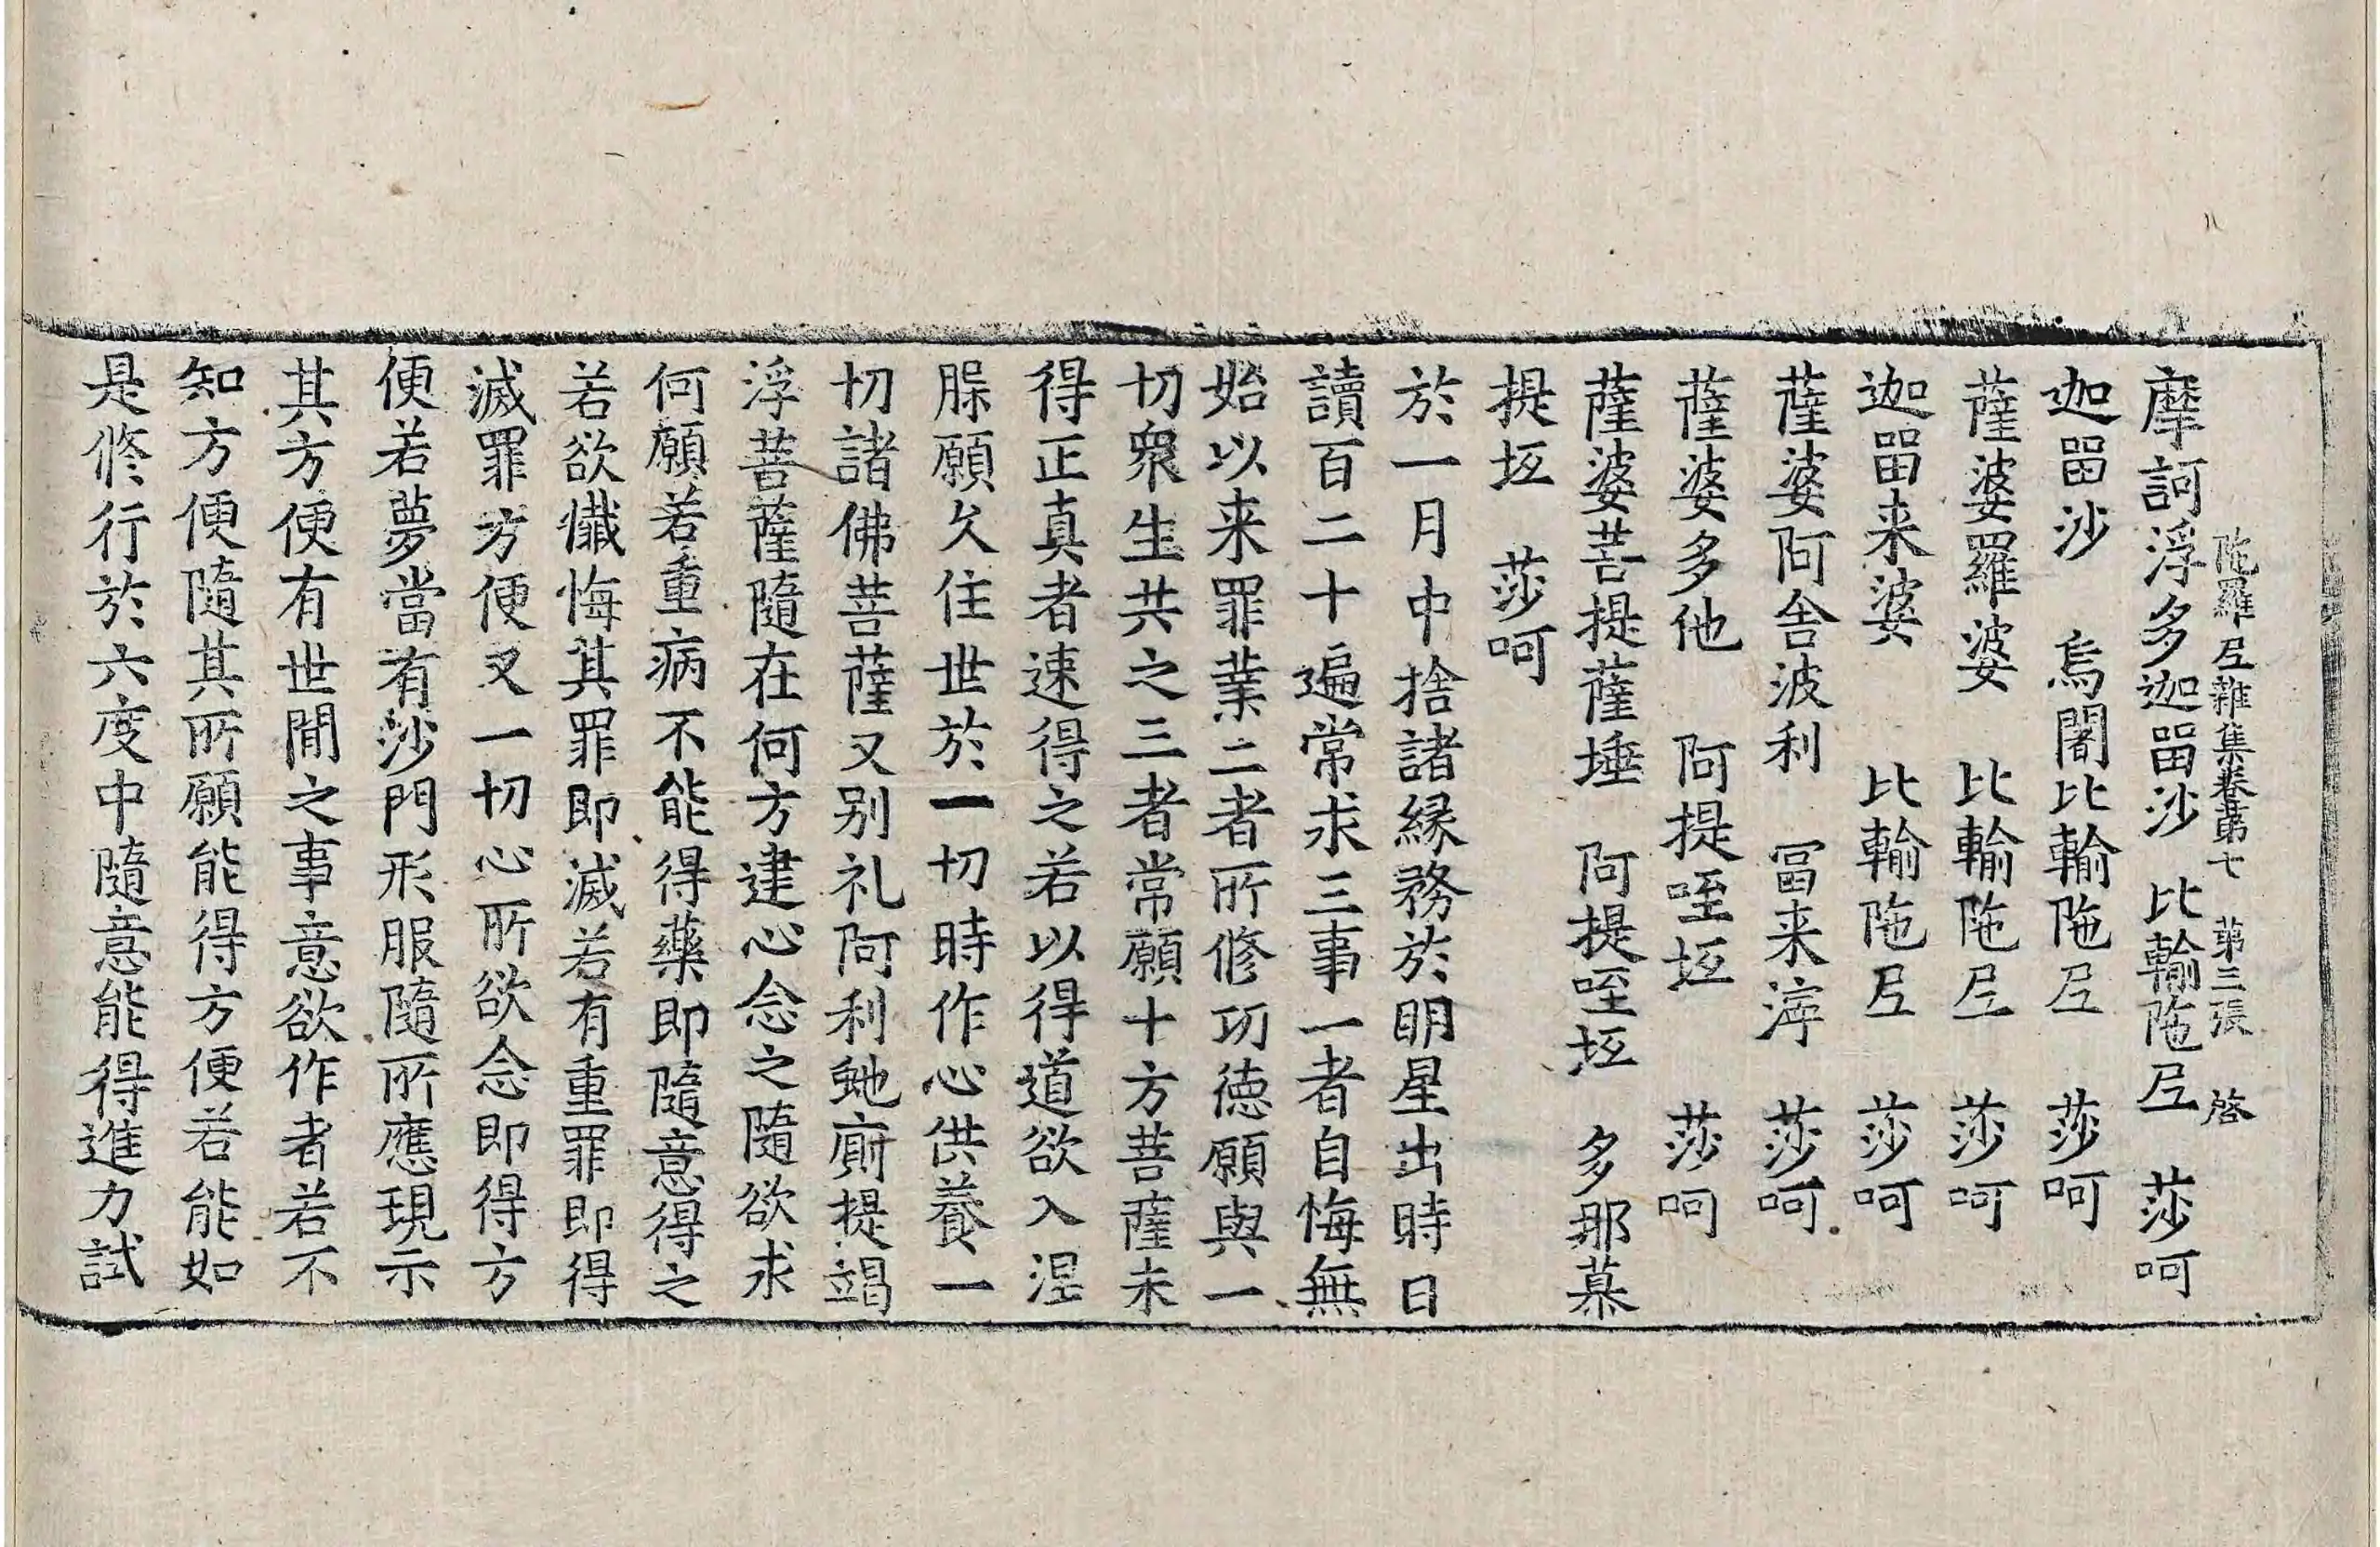 陁羅𡰱雜集卷苐七　苐三張　啓
摩訶浮多迦留沙　比輸陁𡰱　莎呵
迦留沙　烏闍比輸陁𡰱　莎呵
薩婆羅婆　比輸陁𡰱　莎呵
迦留来婆　比輸陁𡰱　莎呵
薩婆阿舍波利　冨来滓　莎呵
薩婆多他　阿提咥坘　莎呵
薩婆菩提薩埵　阿提咥坘　多那慕
提坘　莎呵
於一月中捨諸縁務於明星出時日
讀百二十遍常求三事一者自悔無
始以来罪業二者所修功德願與一
切衆生共之三者常願十方菩薩未
得正真者速得之若以得道欲入涅
𦜮願久住世於一切時作心供養一
切諸佛菩薩又別礼阿利虵廁提竭
浮菩薩隨在何方建心念之隨欲求
何願若重病不能得藥即隨意得之
若欲懺悔其罪即滅若有重罪即得
滅罪方便又一切心所欲念即得方
便若夢當有沙門形服隨所應現示
其方便有世閒之事意欲作者若不
知方便隨其所願能得方便若能如
是修行於六度中隨意能得進力試